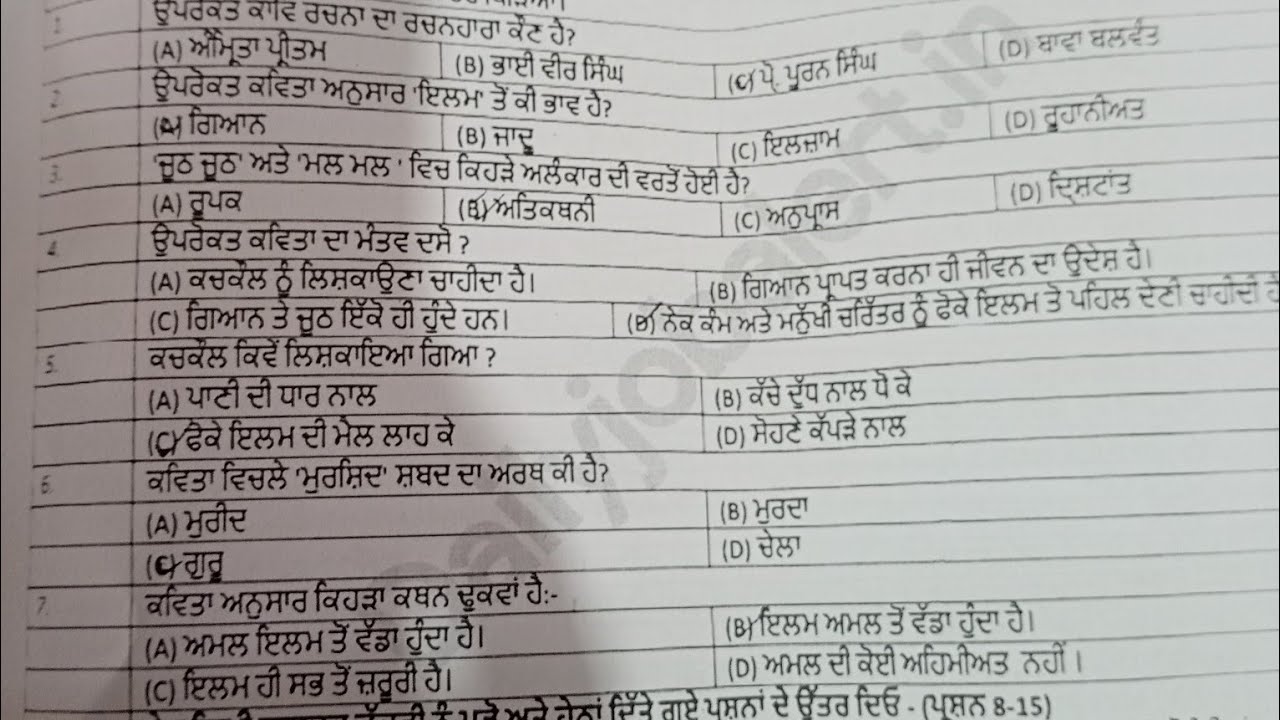 1. ਉਪਰੋਕਤ ਕਾਵਿ ਰਚਨਾ ਦਾ ਰਚਨਹਾਰਾ ਕੌਣ ਹੈ?
(A) ਅੰਮ੍ਰਿਤਾ ਪ੍ਰੀਤਮ (B) ਭਾਈ ਵੀਰ ਸਿੰਘ (C) ਪ੍ਰੋ. ਪੂਰਨ ਸਿੰਘ (D) ਬਾਵਾ ਬਲਵੰਤ
2. ਉਪਰੋਕਤ ਕਵਿਤਾ ਅਨੁਸਾਰ 'ਇਲਮ' ਤੋਂ ਕੀ ਭਾਵ ਹੈ?
(A) ਗਿਆਨ (B) ਜਾਦੂ (C) ਇਲਜ਼ਾਮ (D) ਰੂਹਾਨੀਅਤ
3. 'ਜੂਠ ਜੂਠ' ਅਤੇ 'ਮਲ ਮਲ ' ਵਿਚ ਕਿਹੜੇ ਅਲੰਕਾਰ ਦੀ ਵਰਤੋਂ ਹੋਈ ਹੈ?
(A) ਰੂਪਕ (B) ਅਤਿਕਥਨੀ (C) ਅਨੁਪ੍ਰਾਸ (D) ਦ੍ਰਿਸਟਾਂਤ
4. ਉਪਰੋਕਤ ਕਵਿਤਾ ਦਾ ਮੰਤਵ ਦਸੋ ?
(A) ਕਚਕੌਲ ਨੂੰ ਲਿਸ਼ਕਾਉਣਾ ਚਾਹੀਦਾ ਹੈ। (B) ਗਿਆਨ ਪ੍ਰਾਪਤ ਕਰਨਾ ਹੀ ਜੀਵਨ ਦਾ ਉਦੇਸ਼ ਹੈ।
(C) ਗਿਆਨ ਤੇ ਜੂਠ ਇੱਕੋ ਹੀ ਹੁੰਦੇ ਹਨ। (D) ਨੇਕ ਕੰਮ ਅਤੇ ਮਨੁੱਖੀ ਚਰਿੱਤਰ ਨੂੰ ਫੋਕੇ ਇਲਮ ਤੋ ਪਹਿਲ ਦੇਣੀ ਚਾਹੀਦੀ ਹੈ
5. ਕਚਕੌਲ ਕਿਵੇਂ ਲਿਸ਼ਕਾਇਆ ਗਿਆ ?
(A) ਪਾਣੀ ਦੀ ਧਾਰ ਨਾਲ (B) ਕੱਚੇ ਦੁੱਧ ਨਾਲ ਧੋ ਕੇ
(C) ਫੋਕੇ ਇਲਮ ਦੀ ਮੈਲ ਲਾਹ ਕੇ (D) ਸੋਹਣੇ ਕੱਪੜੇ ਨਾਲ
6. ਕਵਿਤਾ ਵਿਚਲੇ 'ਮੁਰਸ਼ਿਦ' ਸ਼ਬਦ ਦਾ ਅਰਥ ਕੀ ਹੈ?
(A) ਮੁਰੀਦ (B) ਮੁਰਦਾ
(C) ਗੁਰੂ (D) ਚੇਲਾ
7. ਕਵਿਤਾ ਅਨੁਸਾਰ ਕਿਹੜਾ ਕਥਨ ਢੁਕਵਾਂ ਹੈ:-
(A) ਅਮਲ ਇਲਮ ਤੋਂ ਵੱਡਾ ਹੁੰਦਾ ਹੈ। (B) ਇਲਮ ਅਮਲ ਤੋਂ ਵੱਡਾ ਹੁੰਦਾ ਹੈ।
(C) ਇਲਮ ਹੀ ਸਭ ਤੋਂ ਜ਼ਰੂਰੀ ਹੈ। (D) ਅਮਲ ਦੀ ਕੋਈ ਅਹਿਮੀਅਤ ਨਹੀਂ ।
ਅਤੇ ਹੇਠਾਂ ਦਿੱਤੇ ਗਏ ਪ੍ਰਸ਼ਨਾਂ ਦੇ ਉੱਤਰ ਦਿਓ - (ਪ੍ਰਸ਼ਨ 8-15)